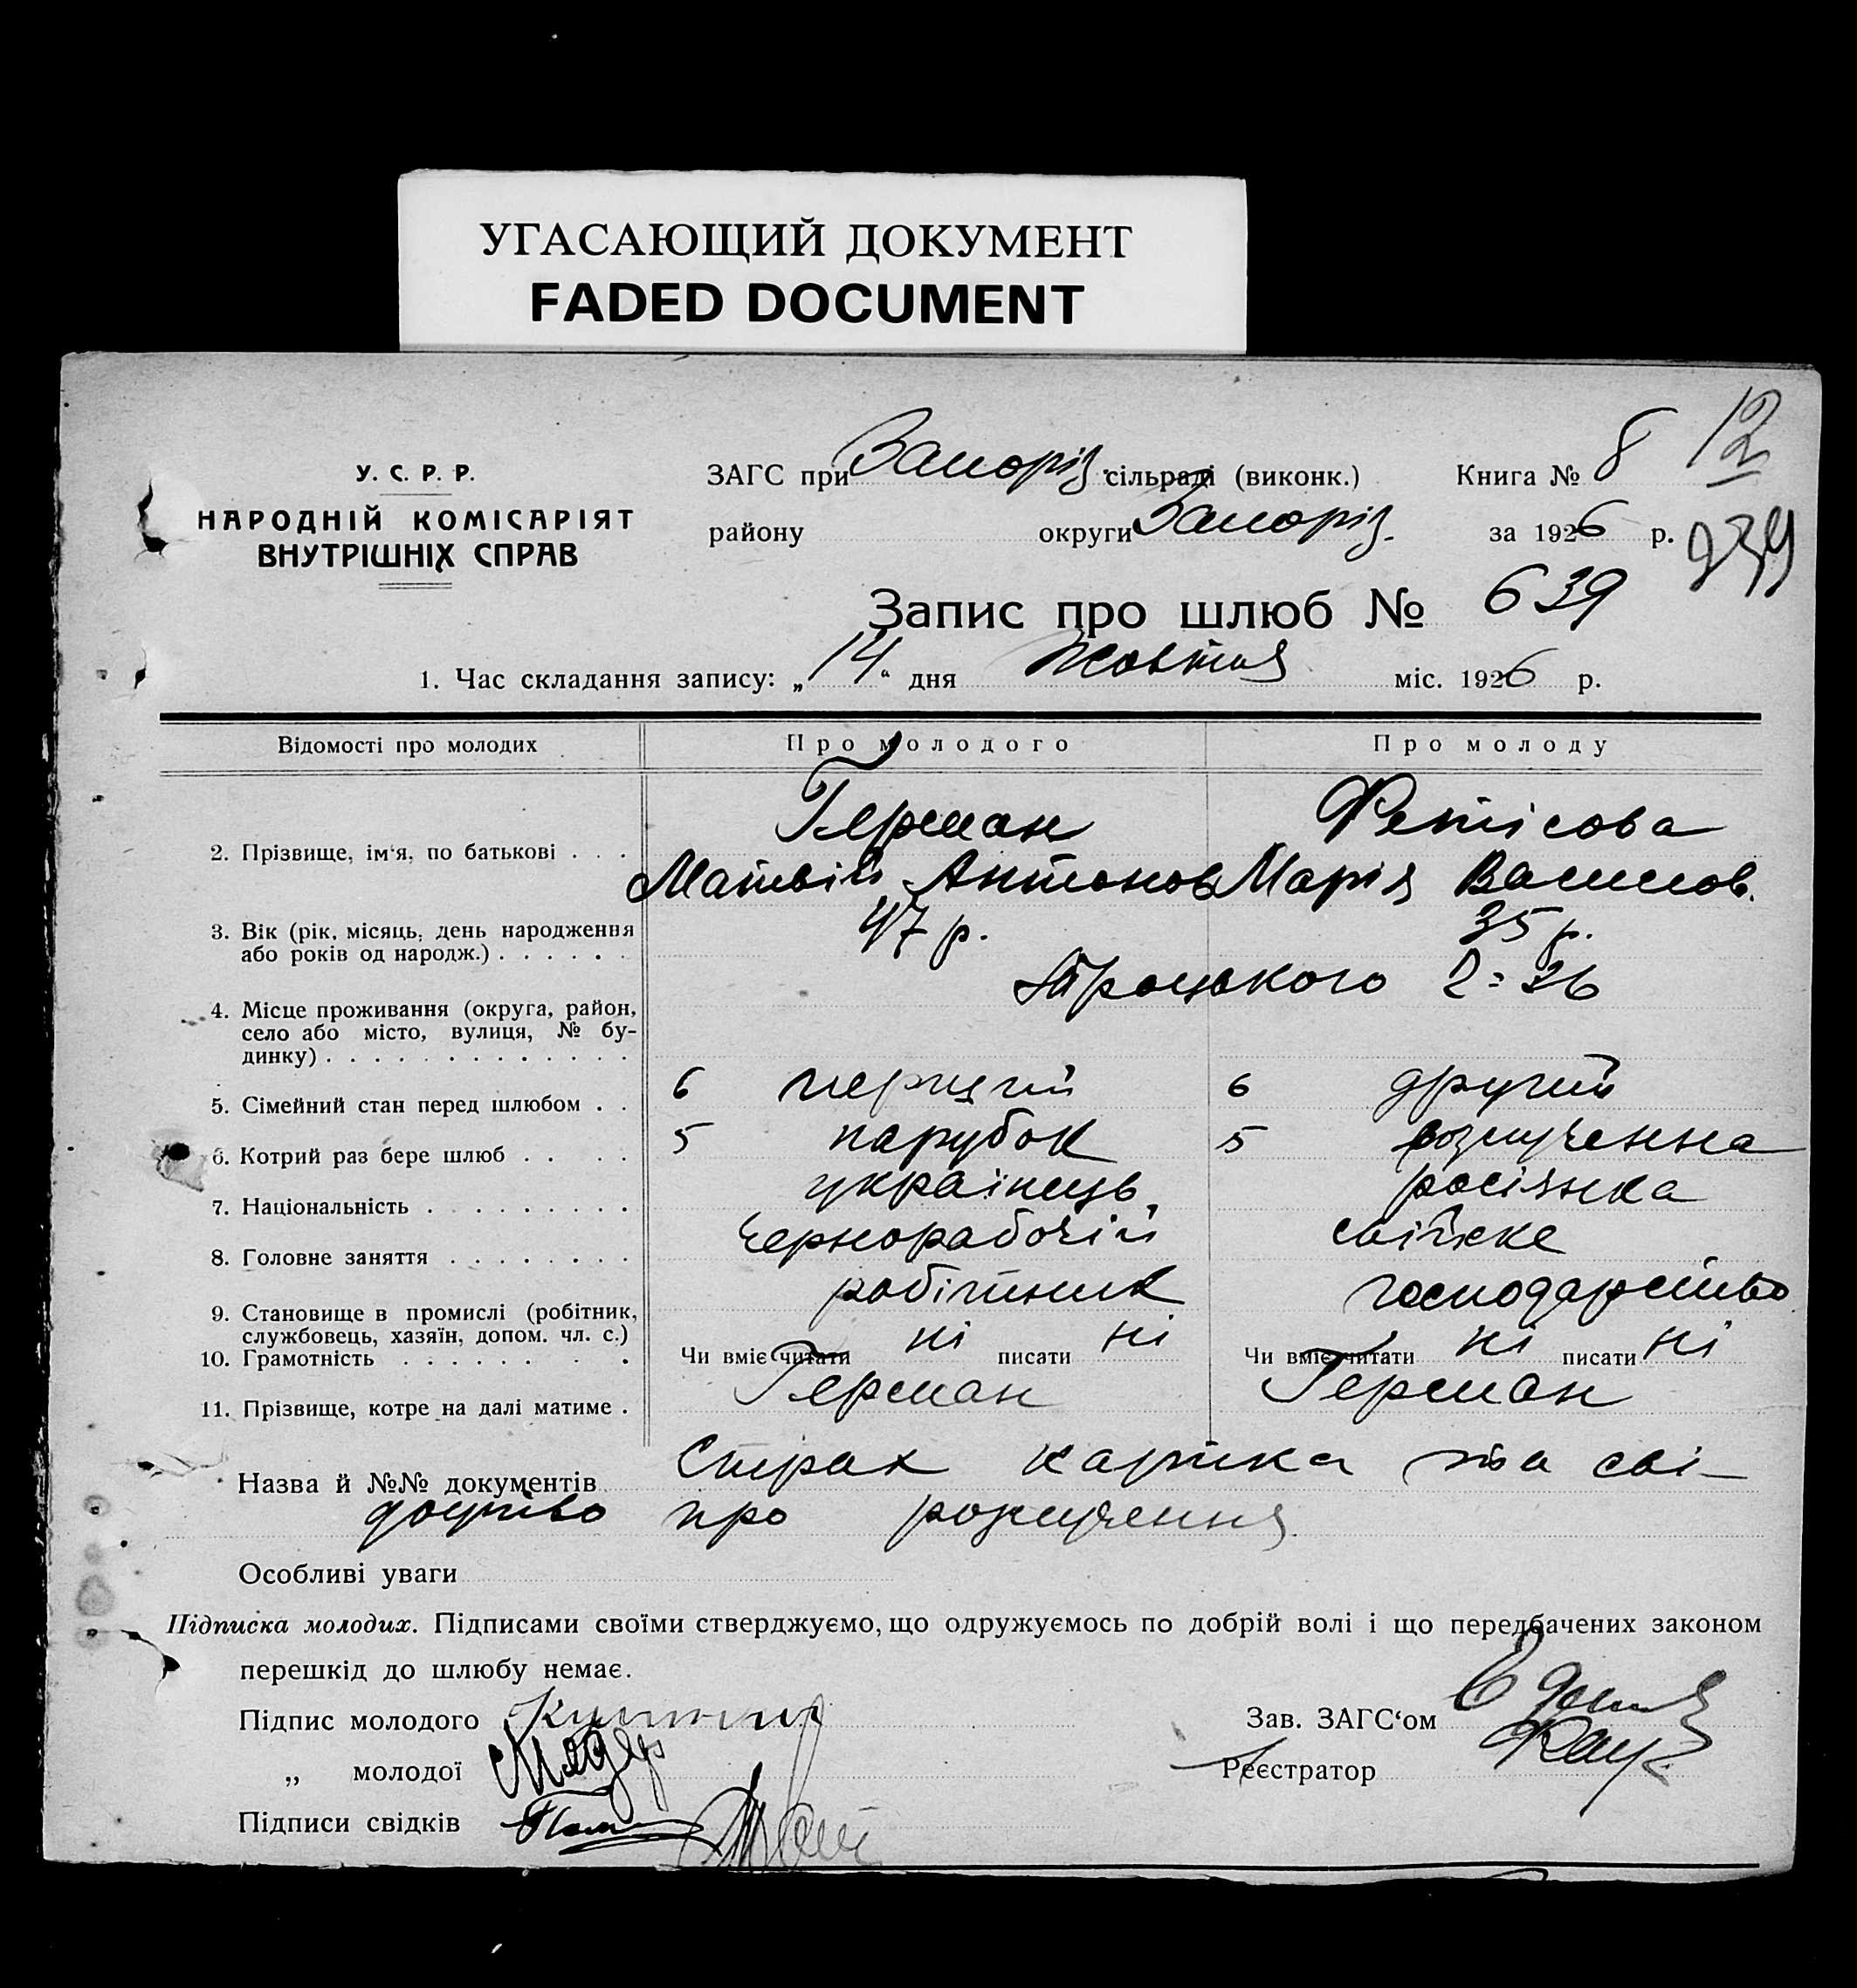 УГАСАЮЩИЙ ДОКУМЕНТ
FADED DOCUMENT
12
У. С. Р. Р.
НАРОДНІЙ КОМІСАРІЯТ
ВНУТРІШНІХ СПРАВ
ЗАГС при Запоріз. сільраді (виконк.) Книга № 8
району округи Запоріз. за 1926 р.
239
Запис про шлюб № 639
1. Час складання запису: „14“ дня Жовтня міс. 1926 р.
Відомості про молодих Про молодого Про молоду
2. Прізвище, ім‘я, по батькові . . .
Герман
Матвій Антонов
Фетісова
Марія Василов.
3. Вік (рік, місяць, день народження
або років од народж.) . . . . . .
47 р. 35 р.
4. Місце проживання (округа, район,
село або місто, вулиця, № бу-
динку) . . . . . . . . . . . . .
Троцького 2 = 26
5. Сімейний стан перед шлюбом . . 6 перший 6 другий
6. Котрий раз бере шлюб . . . . 5 парубок 5 розлученна
7. Національність . . . . . . . . . українець росіянка
8. Головне заняття . . . . . . . . чернорабочій свійске
9. Становище в промислі (робітник,
службовець, хазяїн, допом. чл. с.)
робітник господарство
10. Грамотність . . . . . . . . Чи вміє читати ні писати ні Чи вміє читати ні писати ні
11. Прізвище, котре на далі матиме . Герман Герман
Назва й №№ документів Страх картка та сві-
доцтво про розлучення
Особливі уваги
Підписка молодих. Підписами своїми стверджуємо, що одружуємось по добрій волі і що передбачених законом
перешкід до шлюбу немає.
Підпис молодого
Зав. ЗАГС‘ом
„ молодої
Реєстратор
Підписи свідків